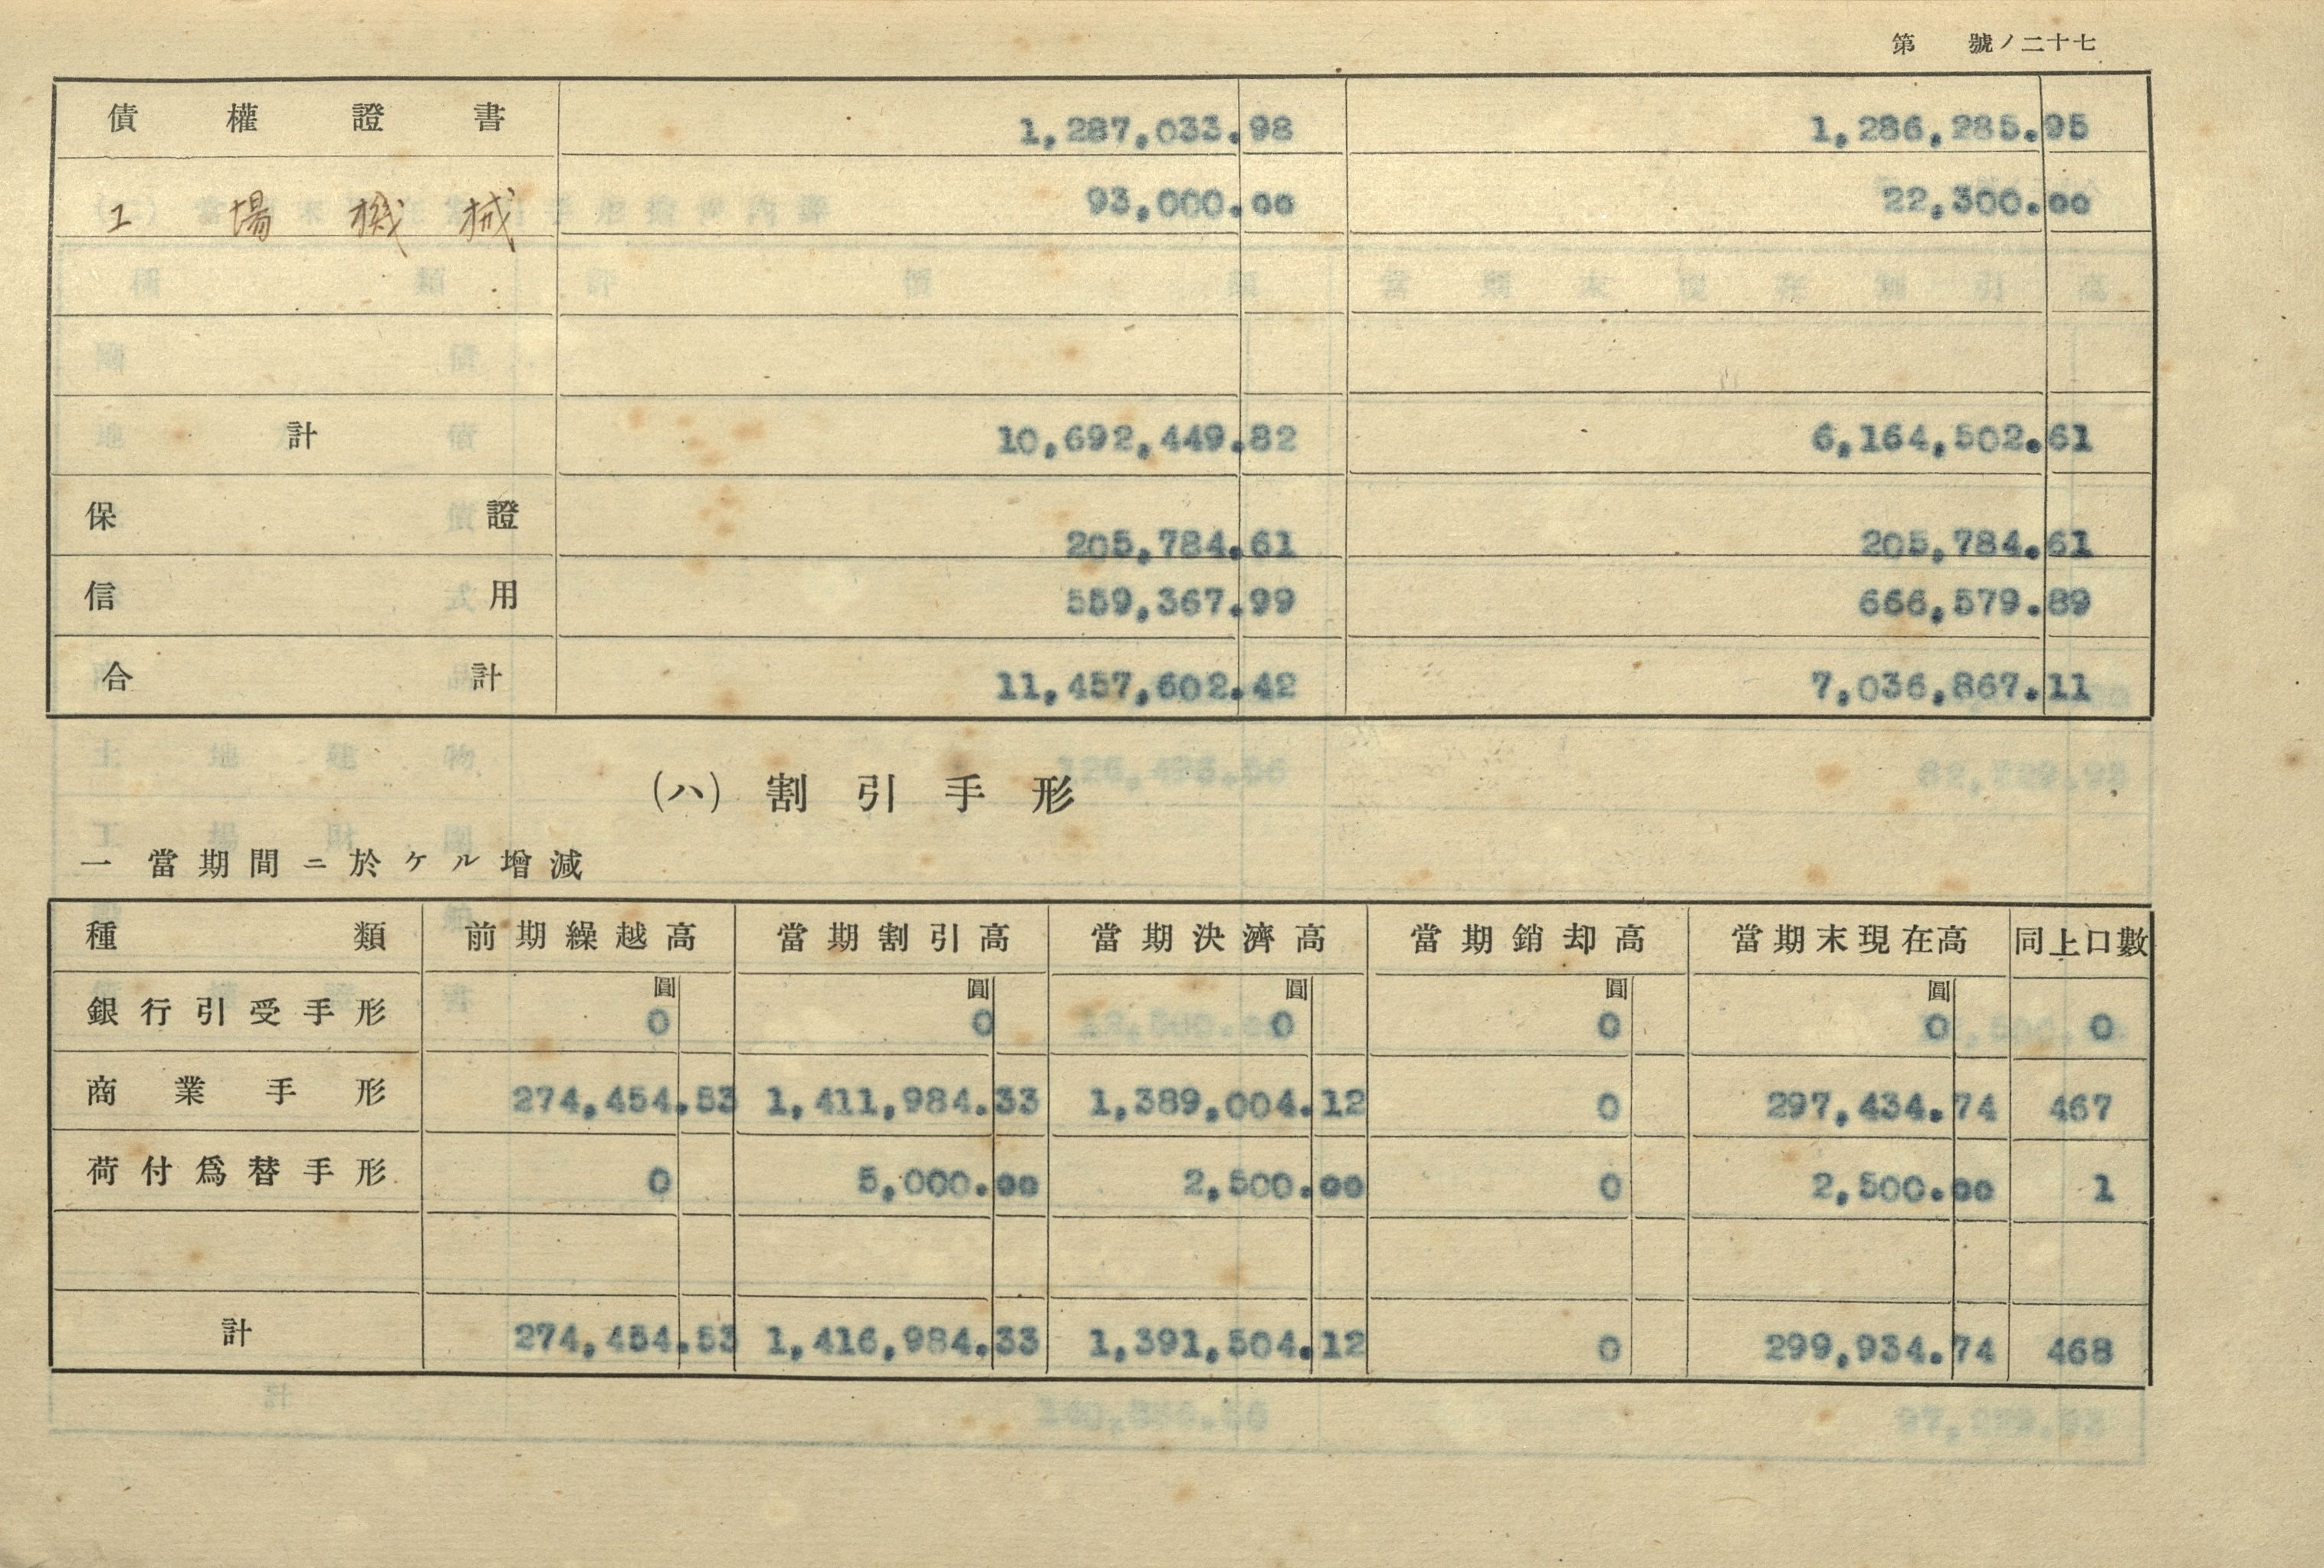 第 號ノ二十七
債權證書 1,287,033.98 1,286,285.95
工場機械 93,000.00 22,300.00
計 10,692,449.82 6,164,502.61
保證 205,784.61 205,784.61
信用 559,367.99 666,579.89
合計 11,457,602.42 7,036,867.11
(ハ) 割引手形
一 當期間ニ於ケル增減
種類 前期繰越高 當期割引高 當期決濟高 當期銷却高 當期末現在高 同上口數
圓 圓 圓 圓 圓
銀行引受手形 0 0 0 0 0 0
商業手形 274,454.53 1,411,984.33 1,389,004.12 0 297,434.74 467
荷付爲替手形 0 5,000.00 2,500.00 0 2,500.00 1
計 274,454.53 1,416,984.33 1,391,504.12 0 299,934.74 468